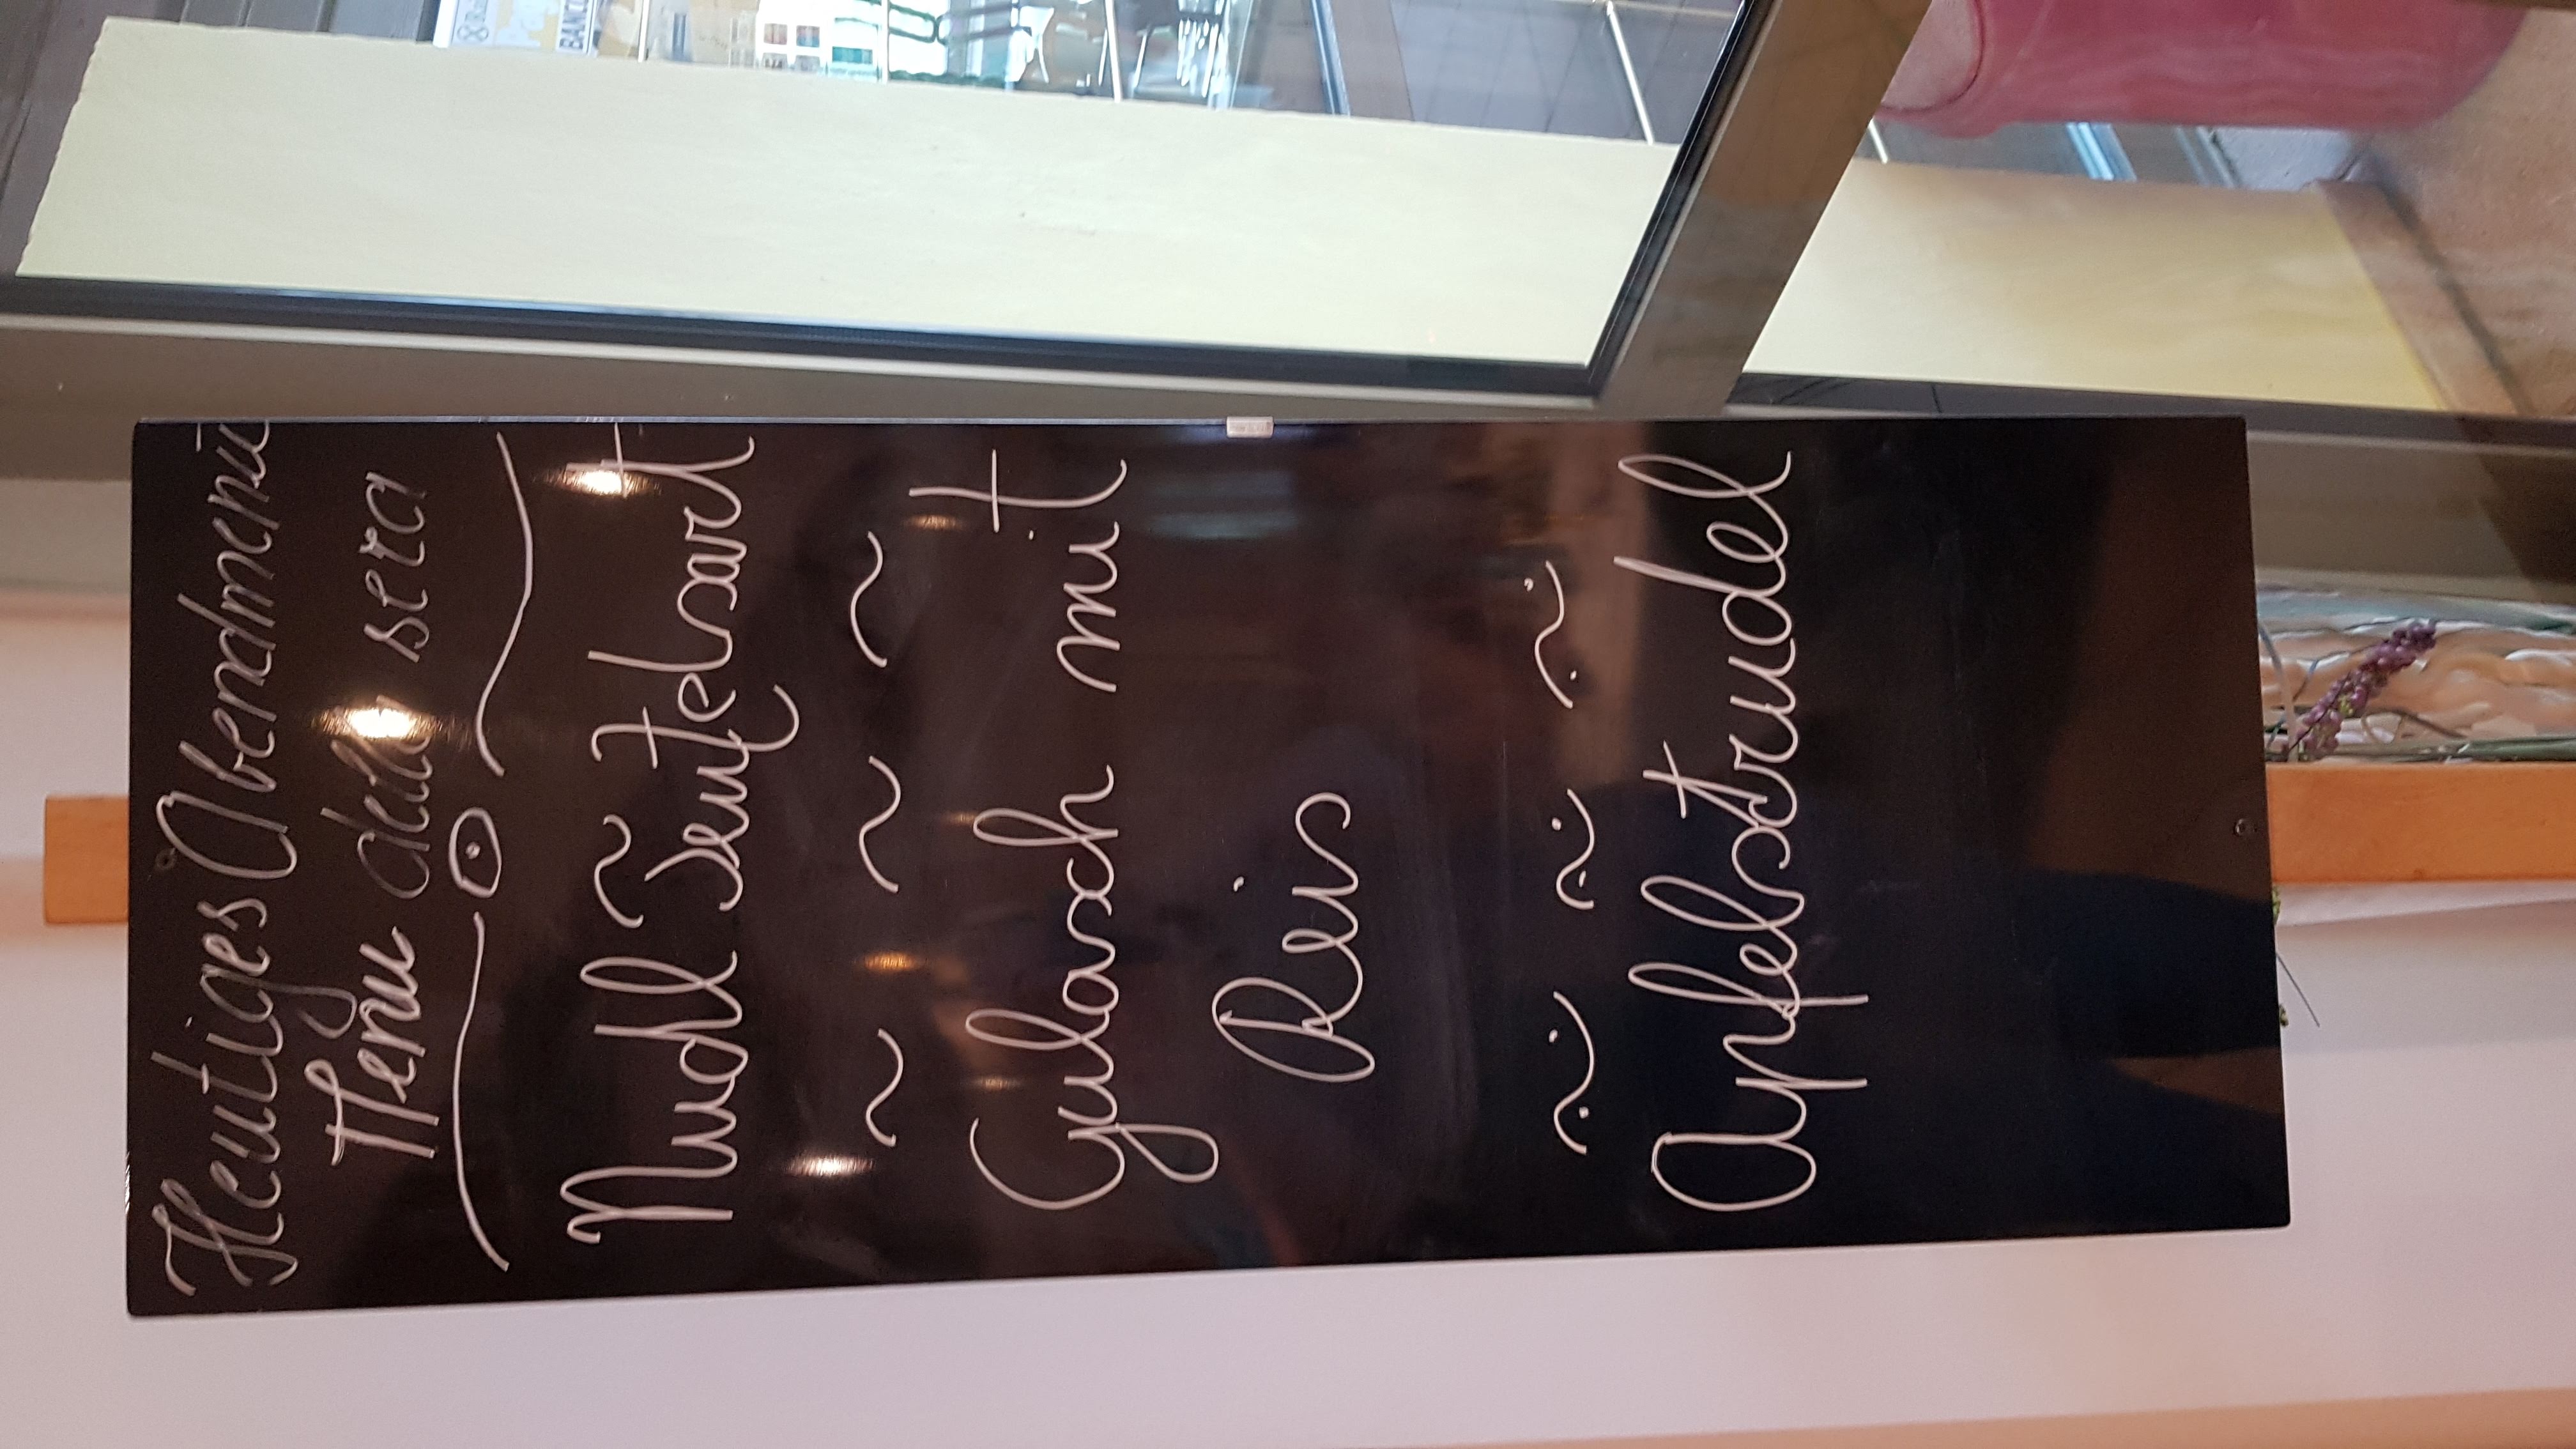 Heutiges Abendmenü
Menu della sera
Nudl
Gulasch mit
Reis
Apfelstrudel